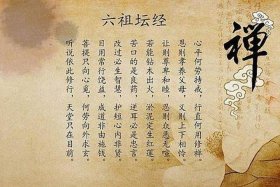 六祖坛经
禅
心平何劳持戒，行直何用修禅。
恩则孝养父母，义则上下相怜。
让则尊卑和睦，忍则众恶无喧。
若能钻木出火，淤泥定生红莲。
苦口的是良药，逆耳必是忠言。
改过必生智慧，护短心内非贤。
日用常行饶益，成道非由施钱。
菩提只向心觅，何劳向外求玄。
听说依此修行，天堂只在目前。